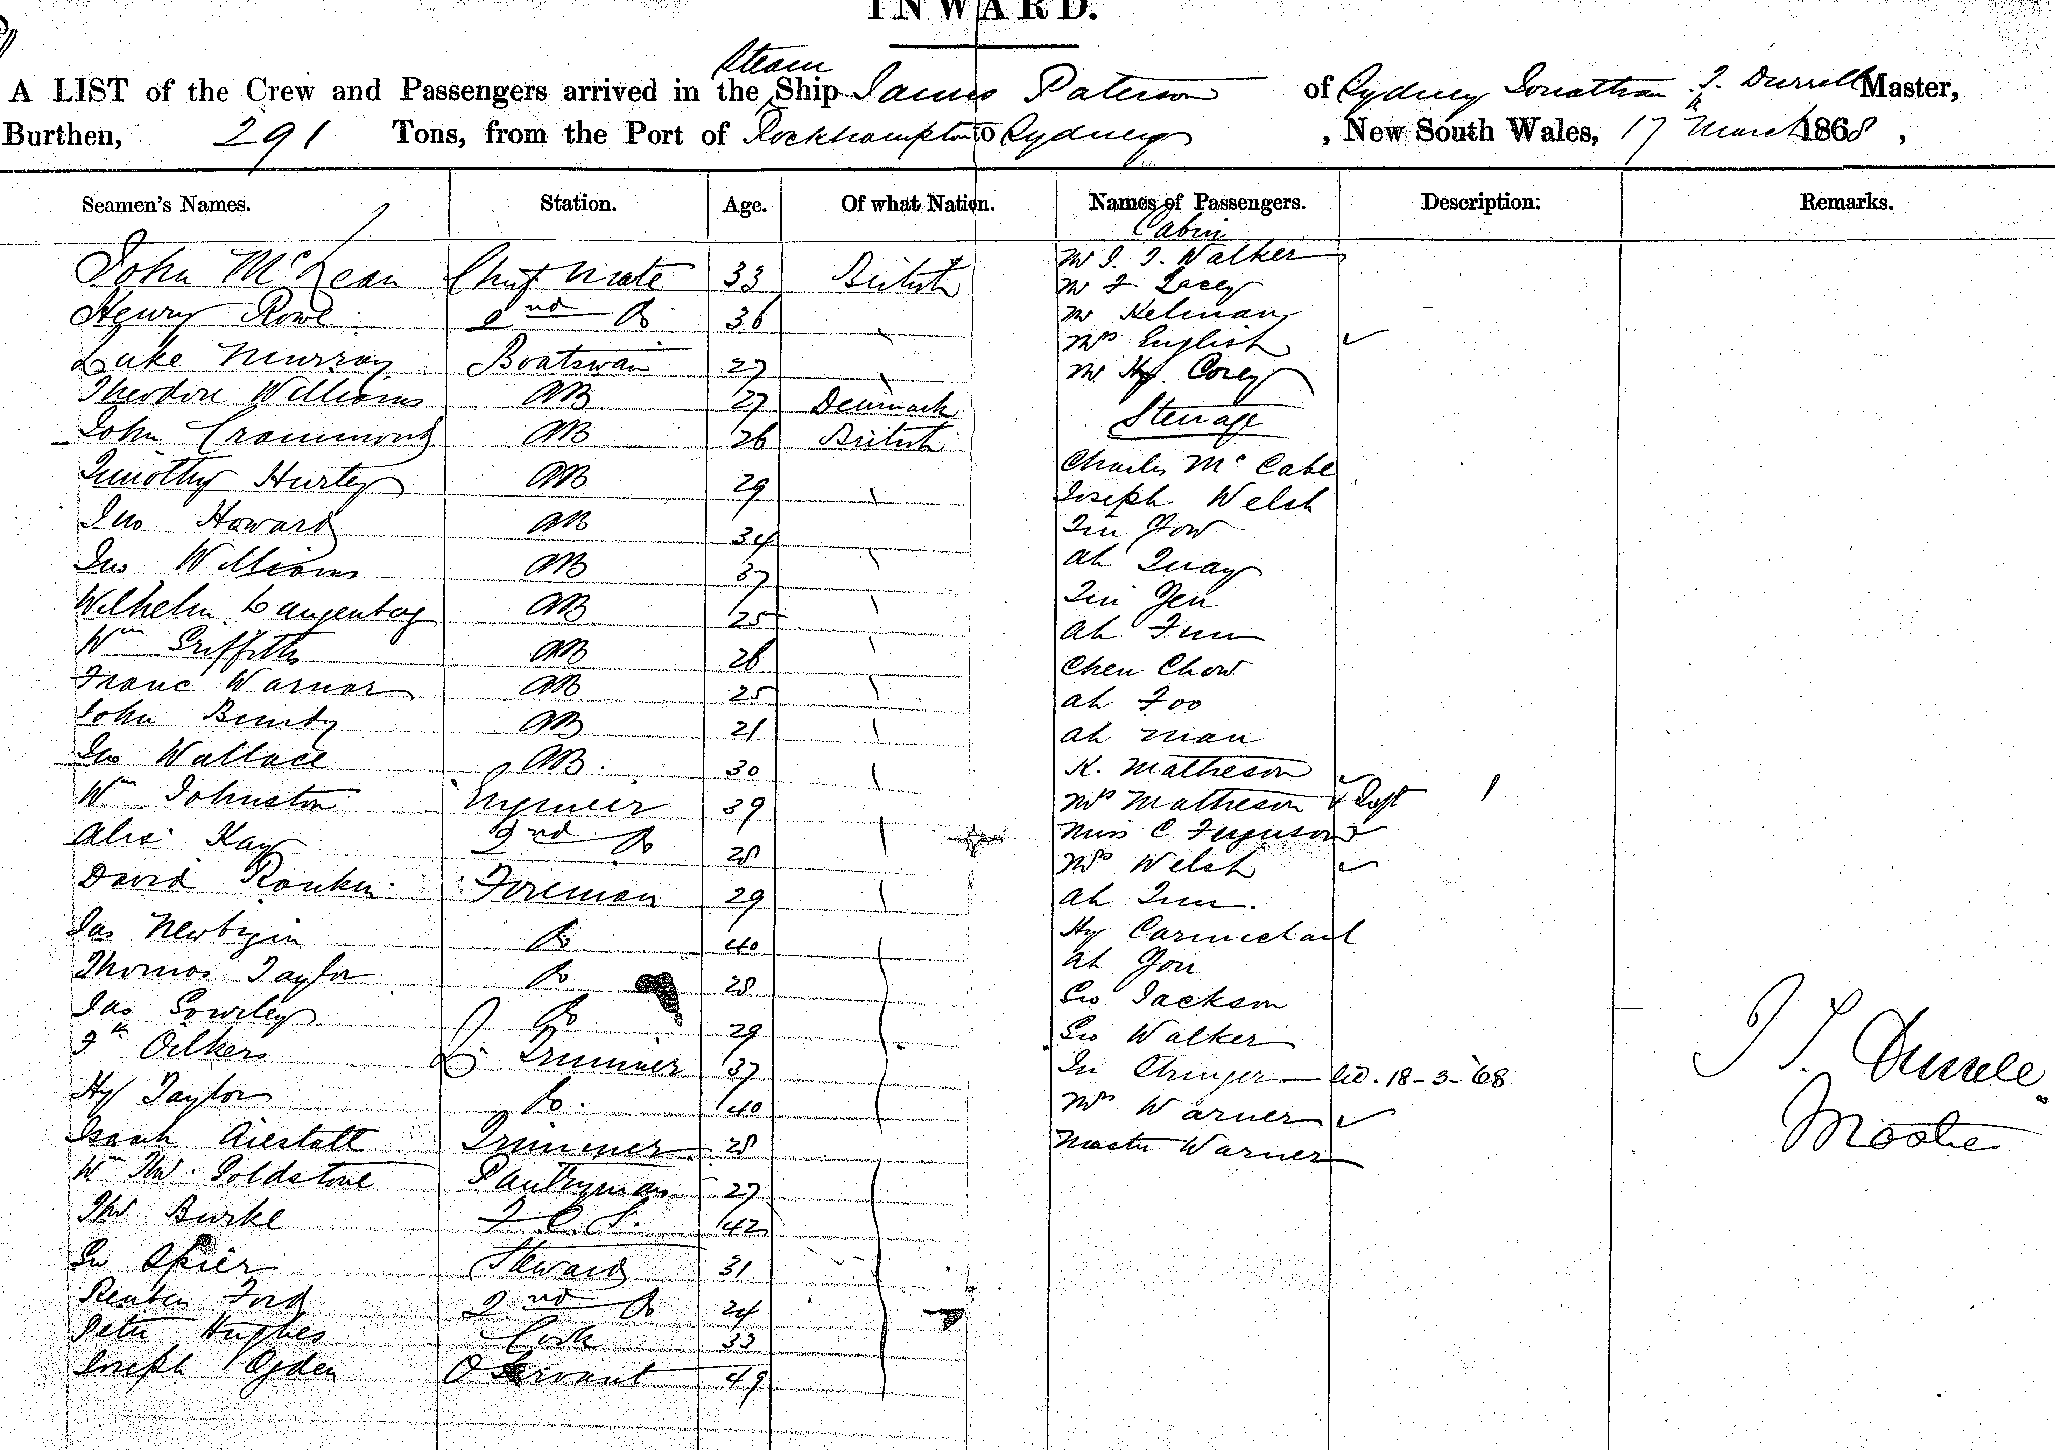 INWARD.
Steam
A LIST of the Crew and Passengers arrived in the Ship James Paterson of Sydney Jonathan T. Durrell Master,
Burthen, 291 Tons, from the Port of Rockhampton to Sydney, New South Wales, 17th March 1868,
Seamen's Names. Station. Age. Of what Nation. Names of Passengers. Description: Remarks.
Cabin
John McLean Chief Mate 33 British
Henry Rowe 2nd Do 36
Luke Murray Boatswain 27
Theodore Williams AB 27 Denmark
John Crammond AB 26 British
Timothy Hurley AB 29
Jno Howard AB 34
Jno Williams AB 37
Wilhelm Langenberg AB 25
Wm Griffiths AB 26
Franc Warner AB 25
John Bundy AB 21
Jno Wallace AB. 30
Wm Johnston Engineer 39
Alex Kay 2nd Do 28
David Rankin Foreman 29
Jas Newbigin Do 40
Thomas Taylor Do 28
Jas Gowley Do 29
Oelkers Trimmer 37
Hy Taylor Do. 40
Trimmer 28
Wm Thos Goldstone Pantryman 27
Thos Burke F. C. S. 42
Geo Spier Steward 31
Reuben Ford 2nd Do 24
Peter Hughes Cook 33
Joseph Ogden O Servant 49
Mr J. T. Walker
Mr F Lacey
Mr Kelman
Mrs English
Mr Hy. Corey
Steerage
Charles McCabe
Joseph Welsh
Tin Yow
Ah Quay
Tin Yen
Ah Fun
Chen Chow
Ah Foo
Ah Man
K. Matheson
Mrs Matheson & Inft 1
Miss C Ferguson
Mrs Welsh
Ah
Hy Carmichael
Ah You
Geo Jackson
Geo Walker
Jn Stringer 18-3-68
Mrs Warner
Master Warner
J T. Durrell
Master